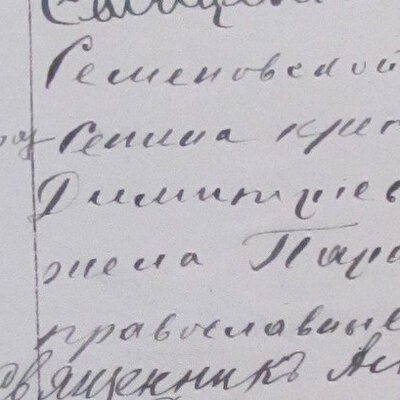 Семеновской
селина крес
Димитриев
жена Пара
православные
Священникъ Ал